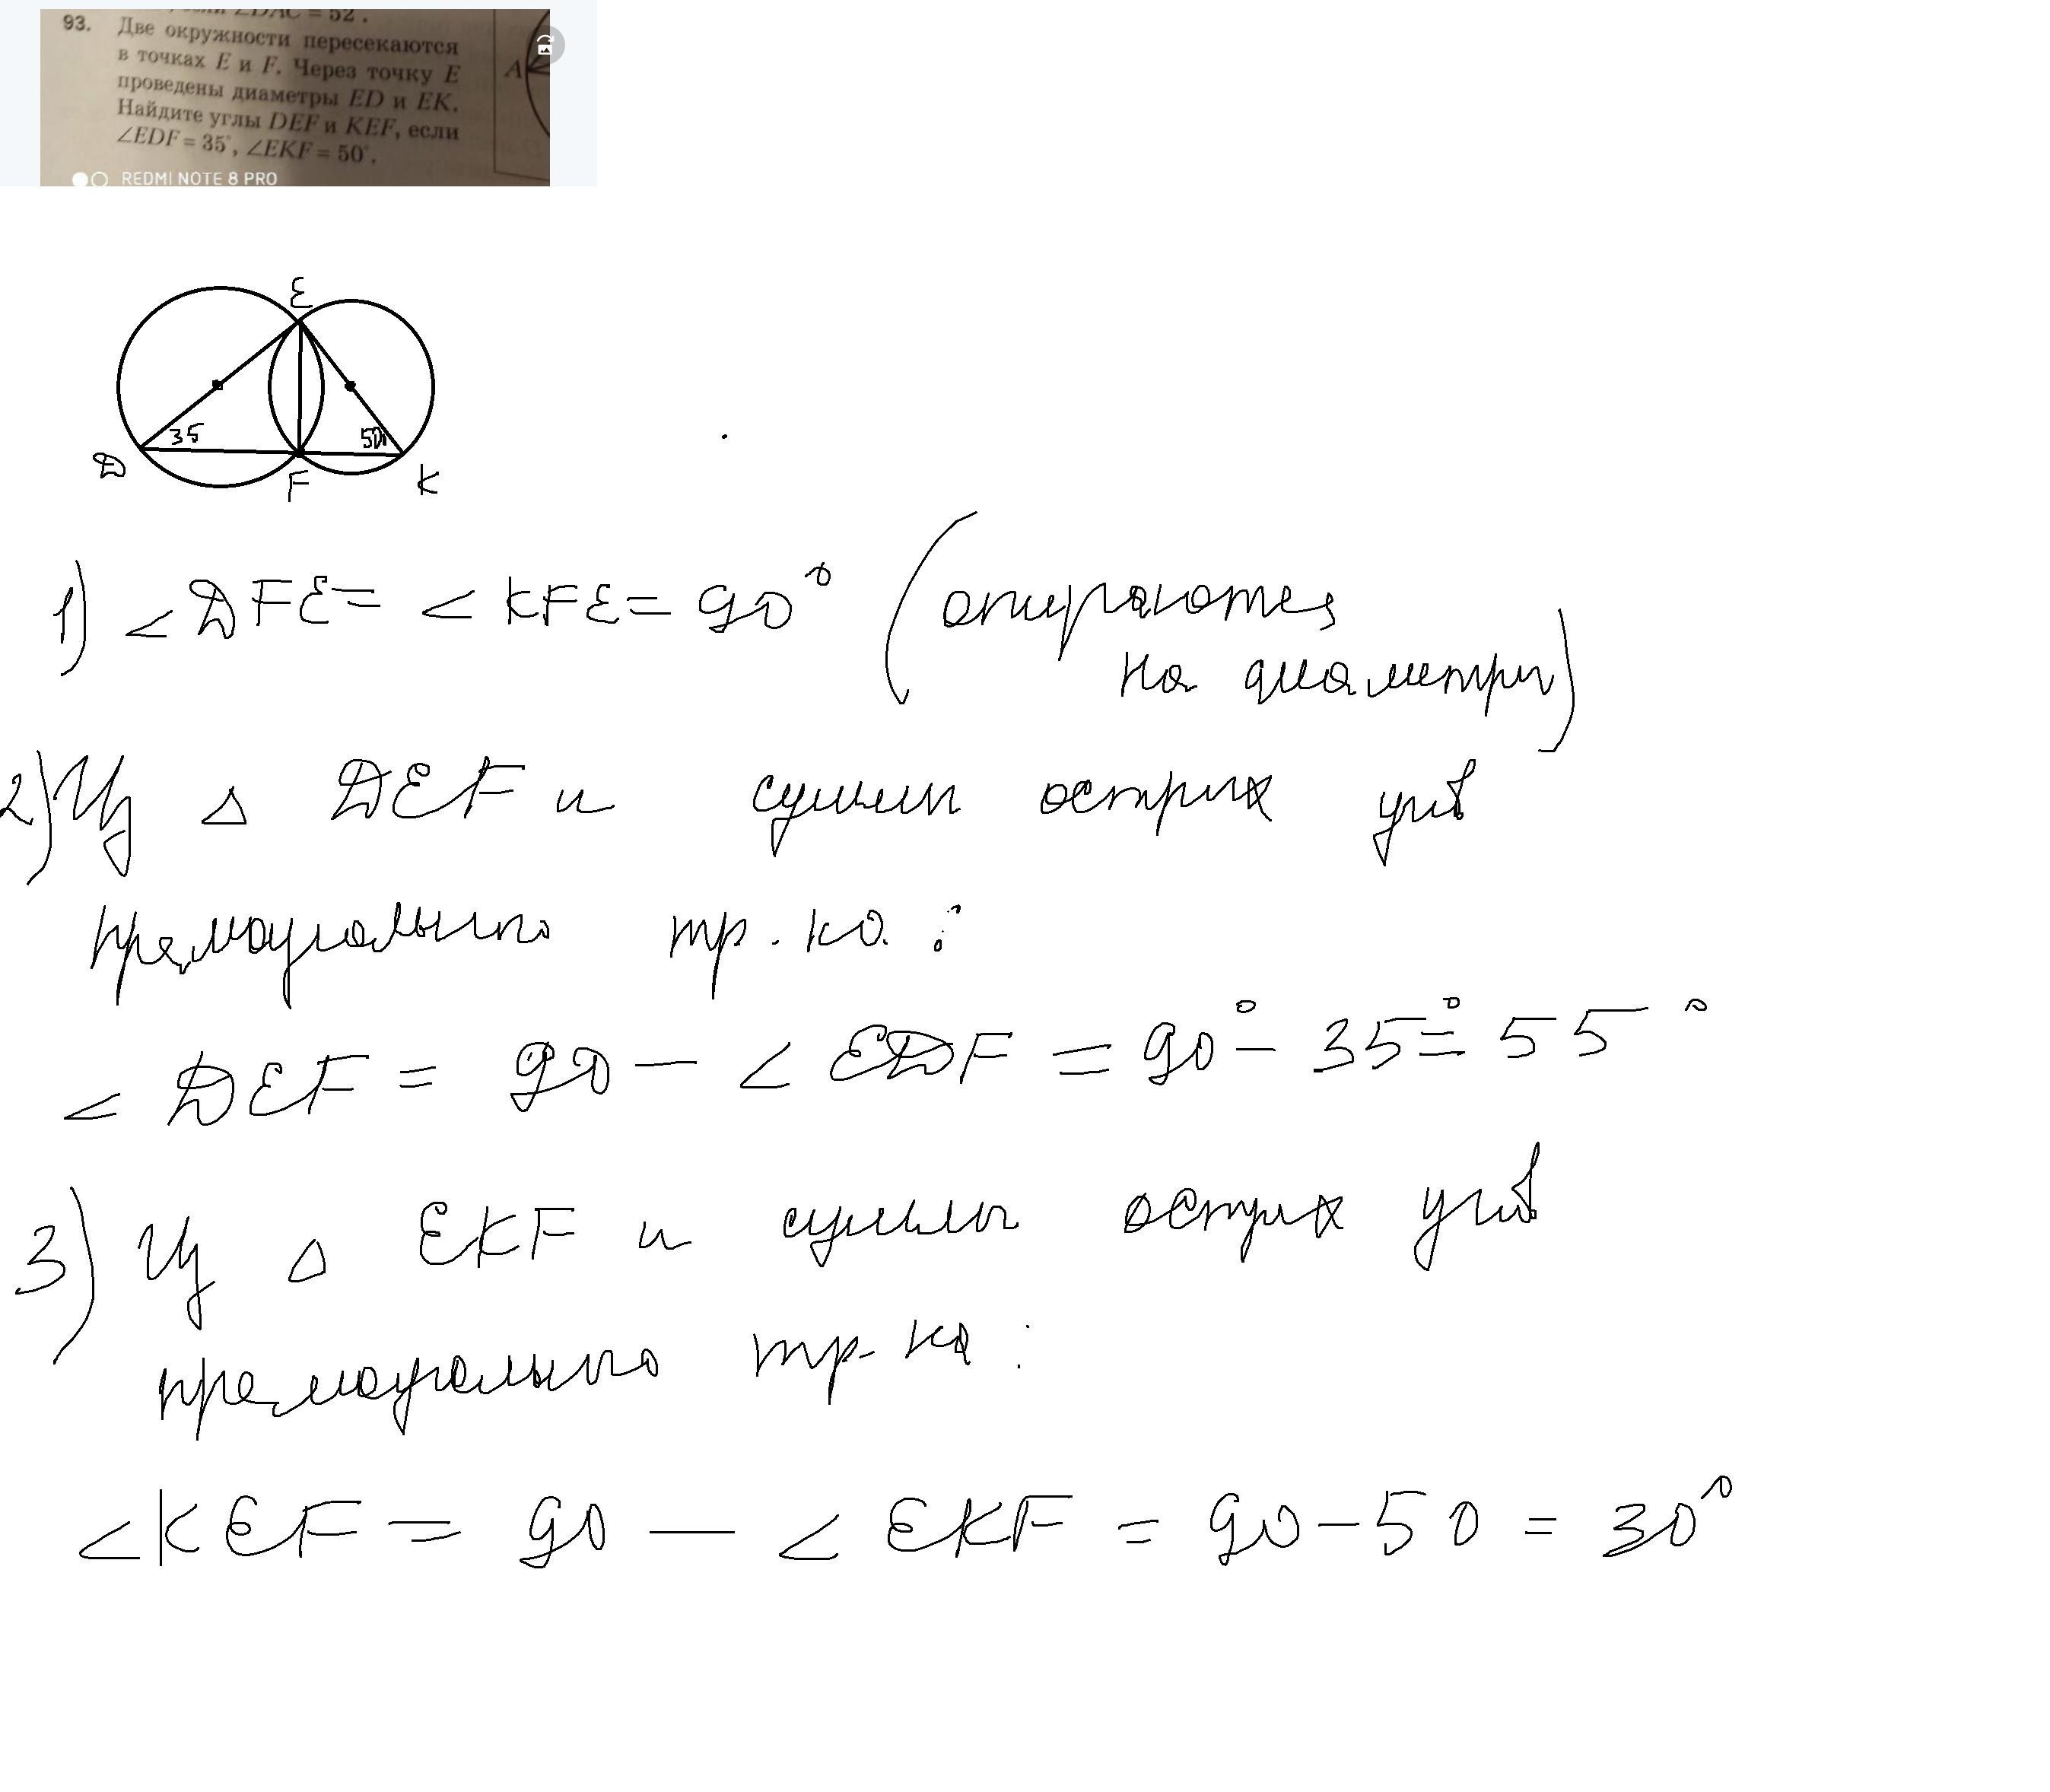 93. Две окружности пересекаются
в точках E и F. Через точку E
проведены диаметры ED и EK.
Найдите углы DEF и KEF, если
∠EDF = 35°, ∠EKF = 50°.
A
REDMI NOTE 8 PRO
E
35
50
D
F
K
1) <DFE = <KFE = 90° (опираются
на диаметры)
2) Из △ DEF и суммы острых угл
прямоугольного тр.ка :
< DEF = 90 — < EDF = 90° - 35° = 55°
3) Из △ EKF и суммы острых угл
прямоугольного тр-ка :
<KEF = 90 — < EKF = 90 - 50 = 30°